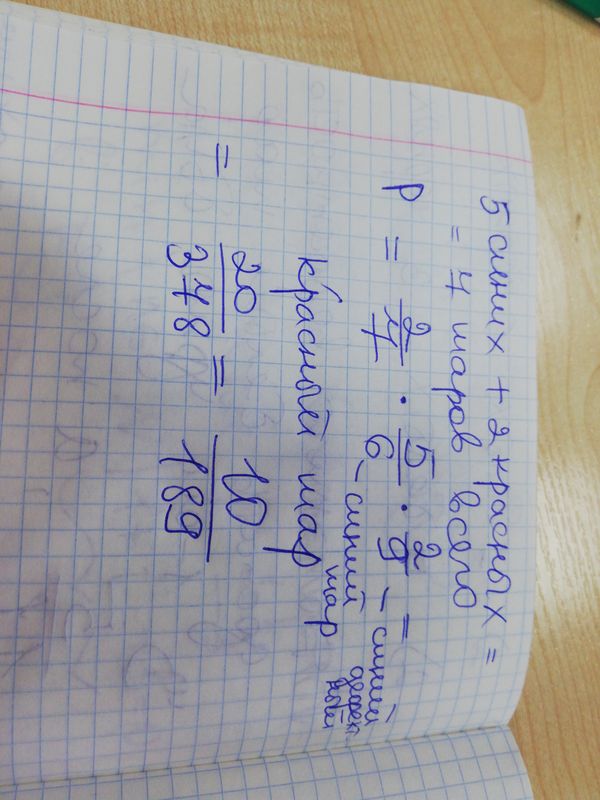 5 синих + 2 красных =
= 7 шаров всего
P = 2/7 · 5/6 · 2/9 =
– синий шар
– синий
красный шар
= 20/378 = 10/189